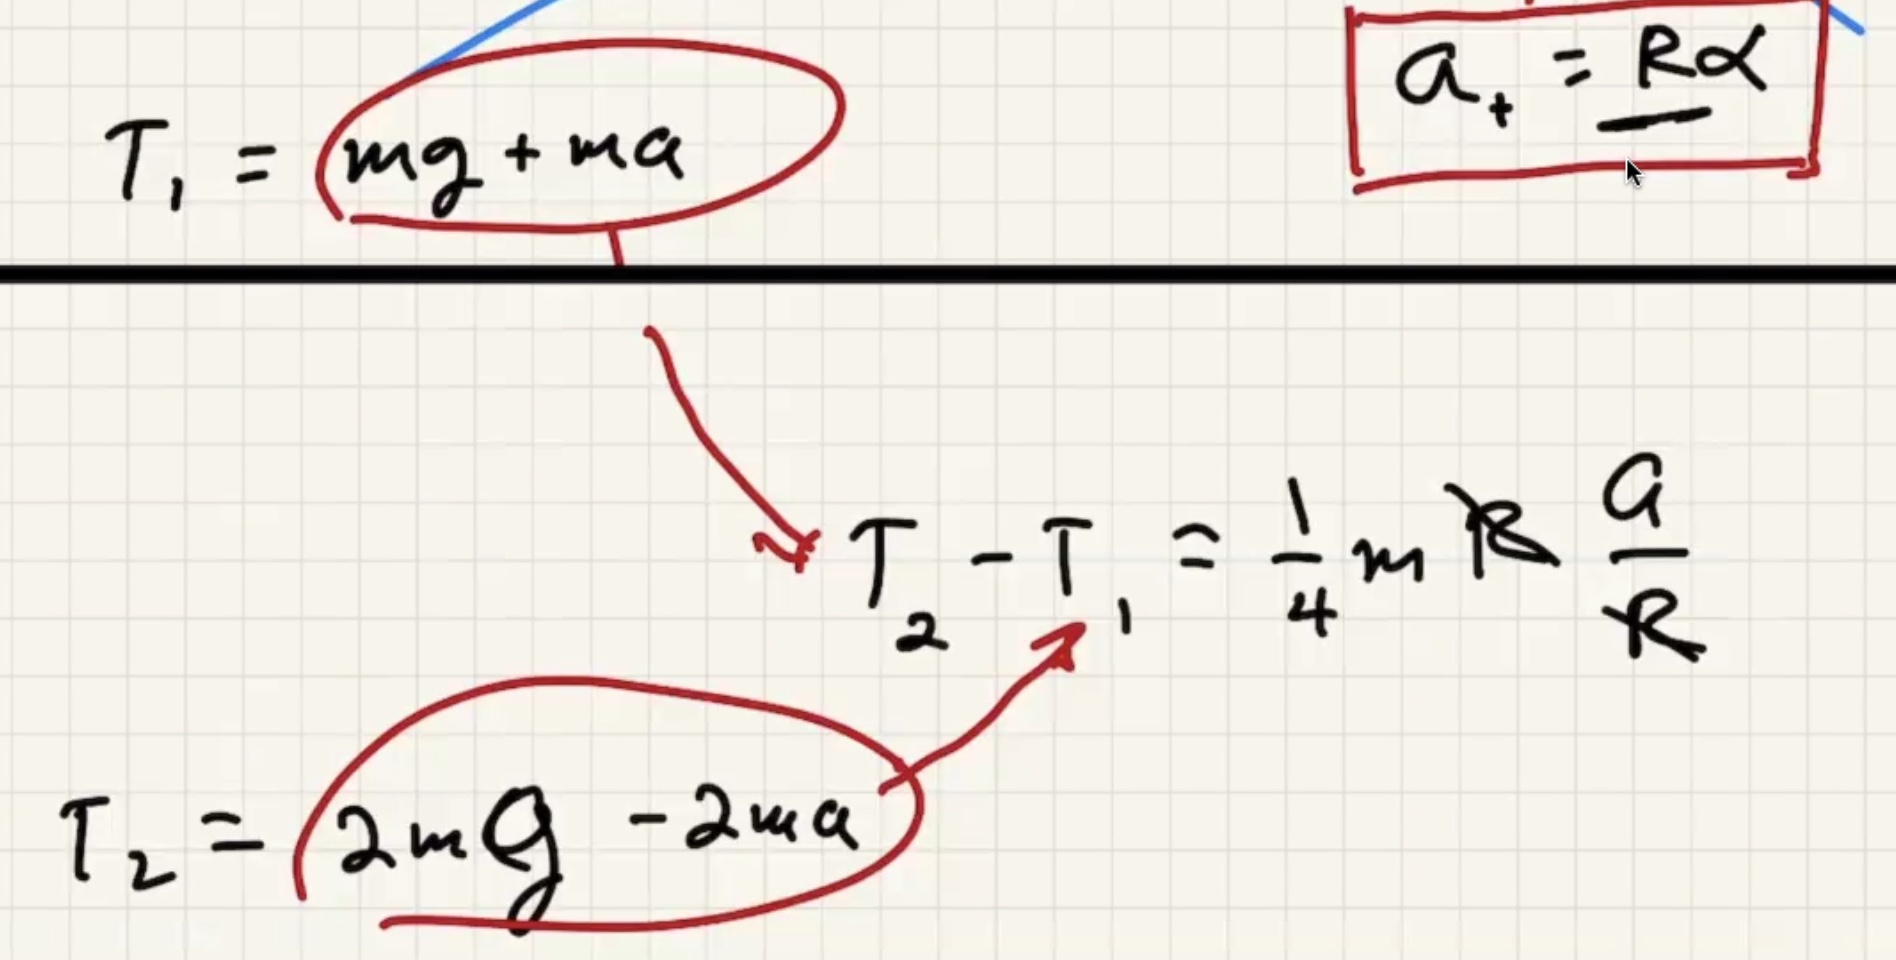 T₁ = mg + ma
a_t = Rα
T₂ - T₁ = 1/4 m R a/R
T₂ = 2mg - 2ma